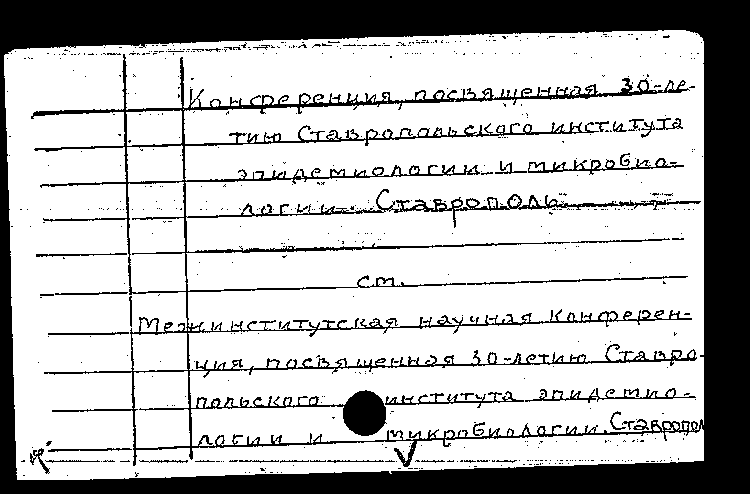 Конференция, посвященная 30-ле-
тию Ставропольского института
эпидемиологии и микробио-
логии. Ставрополь
см.
Межинститутская научная конферен-
ция, посвященная 30-летию Ставро-
польского института эпидемио-
логии и микробиологии. Ставрополь